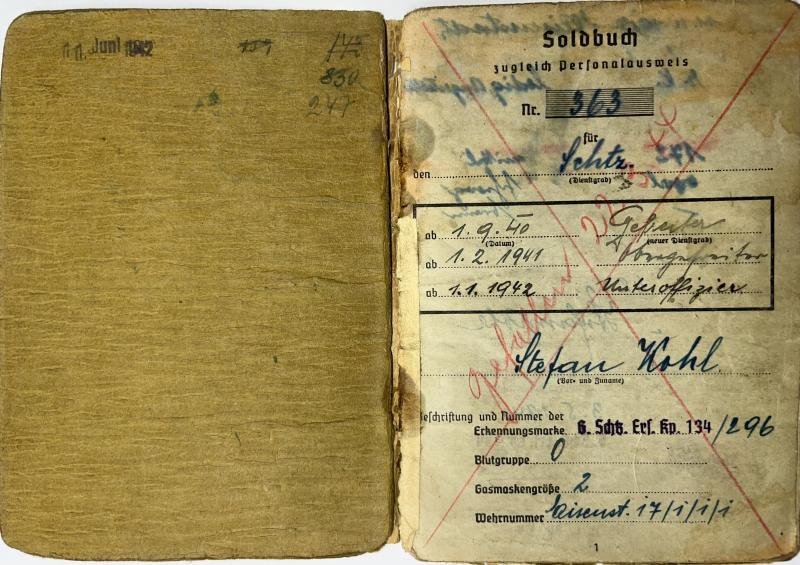 11. Juni 1942
151
142
830
247
Soldbuch
zugleich Personalausweis
Nr. 363
für
den Schtz.
(Dienstgrad)
ab 1.9.40 Gefreiter
(Datum) (neuer Dienstgrad)
ab 1.2.1941 Obergefreiter
ab 1.1.1942 Unteroffizier
gefallen
Stefan Kohl
(Vor- und Zuname)
Beschriftung und Nummer der
Erkennungsmarke 6. Schtz. Ers. Kp. 134 /296
Blutgruppe O
Gasmaskengröße 2
Wehrnummer Eisenst. 17/1/1/1
1